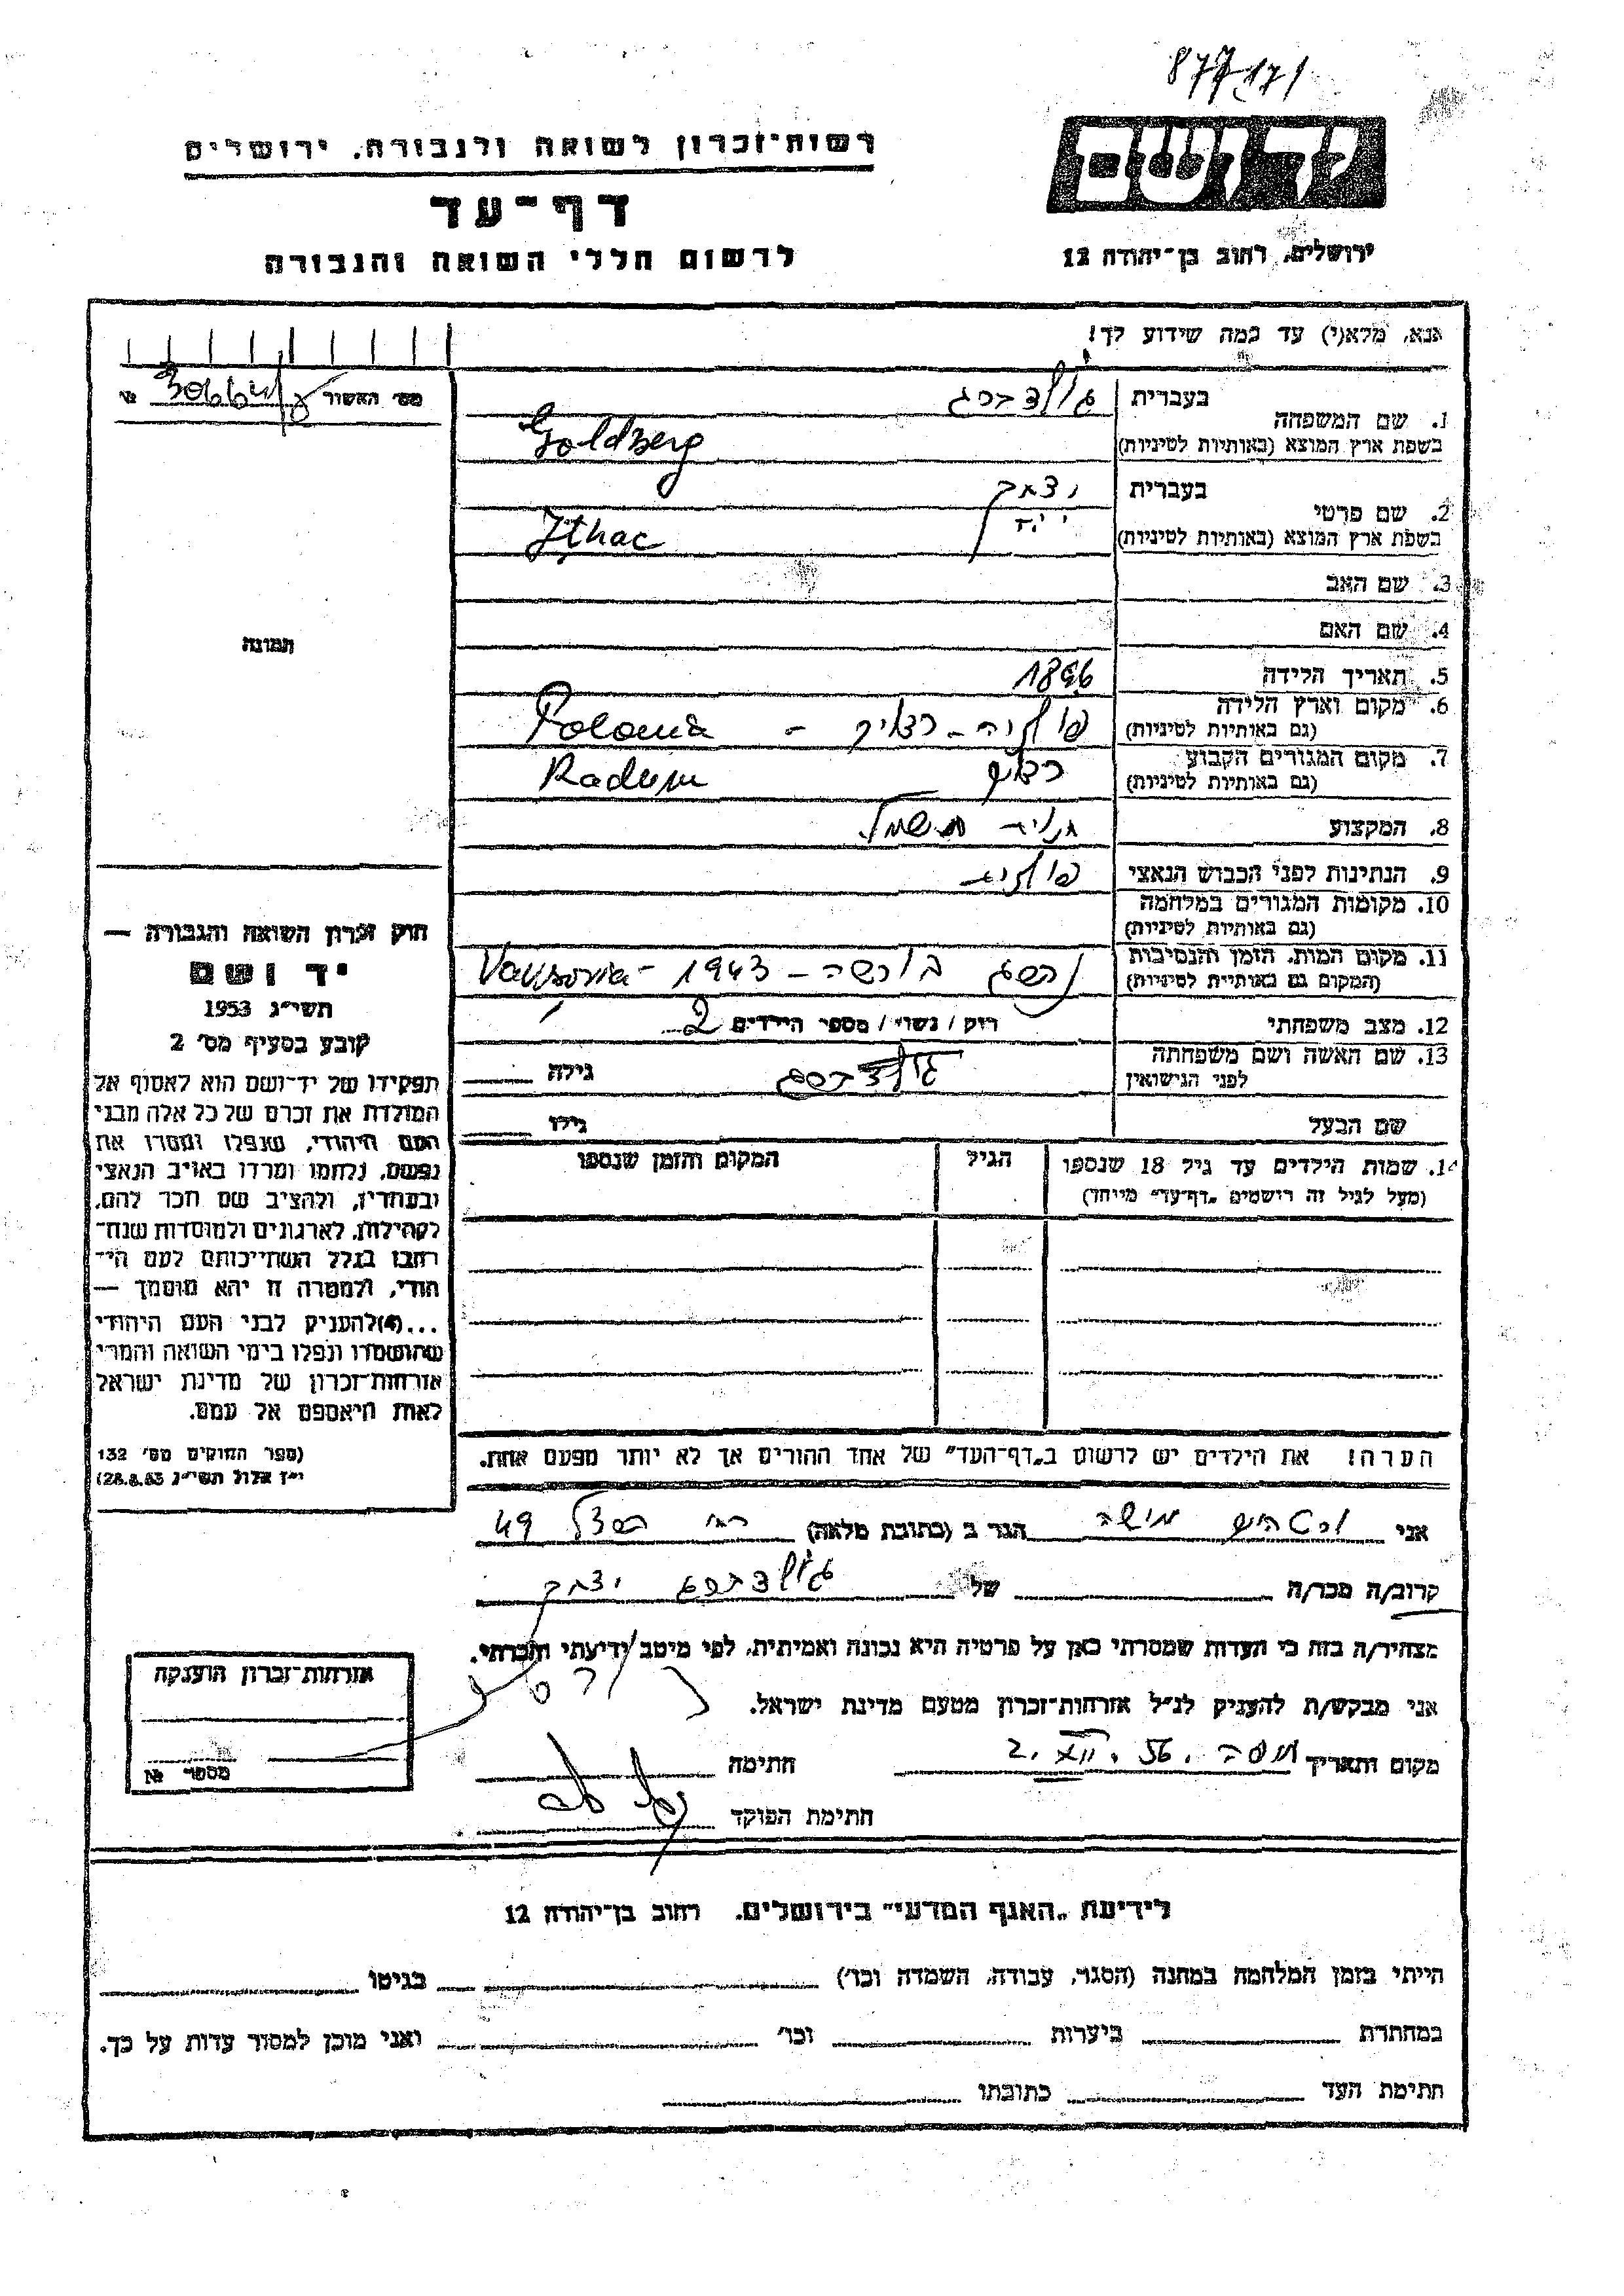 רשות־זכרון לשואה ולגבורה, ירושלים
יד ושם
דף־עד
לרשום חללי השואה והגבורה
ירושלים, רחוב בן־יהודה 12
אנא, מלא(י) עד כמה שידוע לך!
מס׳ האשור №
1. שם המשפחה בעברית גולדברג
בשפת ארץ המוצא (באותיות לטיניות) Goldberg
2. שם פרטי בעברית יצחק
בשפת ארץ המוצא (באותיות לטיניות) Ithac
3. שם האב
4. שם האם
5. תאריך הלידה 1896
6. מקום וארץ הלידה
(גם באותיות לטיניות) פולניה - Polonia
7. מקום המגורים הקבוע
(גם באותיות לטיניות) Radom
8. המקצוע חשמל
9. הנתינות לפני הכבוש הנאצי פולנית
10. מקומות המגורים במלחמה
(גם באותיות לטיניות)
11. מקום המות, הזמן והנסיבות
(המקום גם באותיות לטיניות) נהרג בורשה - 1943 -
12. מצב משפחתי רוק / נשוי / מספר הילדים 2
13. שם האשה ושם משפחתה
לפני הנישואין גולדברג גילה
שם הבעל גילו
14. שמות הילדים עד גיל 18 שנספו הגיל המקום והזמן שנספו
(מעל לגיל זה רישמים „דף־עד" מיוחד)
תמונה
חוק זכרון השואה והגבורה —
יד ושם
תשי״ג 1953
קובע בסעיף מס׳ 2
תפקידו של יד־ושם הוא לאסוף אל
המולדת את זכרם של כל אלה מבני
העם היהודי, שנפלו ומסרו את
נפשם, נלחמו ומרדו באויב הנאצי
ובעוזריו, ולהציב שם וזכר להם,
לקהילות, לארגונים ולמוסדות שנח־
רבו בגלל השתייכותם לעם הי־
הודי, ולמטרה זו יהא מוסמך —
...(4)להעניק לבני העם היהודי
שהושמדו ונפלו בימי השואה והמרי
אזרחות־זכרון של מדינת ישראל
לאות היאספם אל עמם.
(ספר החוקים מס׳ 132
י״ז אלול תשי״ג 28.8.53)
הערה! את הילדים יש לרשום ב„דף־העד" של אחד ההורים אך לא יותר מפעם אחת.
אני משה הגר ב (כתובת מלאה) הרצל 49
קרוב/ה מכר/ה של גולדברג יצחק
מצהיר/ה בזה כי העדות שמסרתי כאן על פרטיה היא נכונה ואמיתית, לפי מיטב ידיעתי והכרתי.
אני מבקש/ת להעניק לנ״ל אזרחות־זכרון מטעם מדינת ישראל.
מקום ותאריך חיפה חתימה
חתימת הפוקד
אזרחות־זכרון הוענקה
מספר №
לידיעת „האגף המדעי" בירושלים, רחוב בן־יהודה 12
הייתי בזמן המלחמה במחנה (הסגר, עבודה, השמדה וכו׳) בגיטו
במחתרת ביערות וכו׳ ואני מוכן למסור עדות על כך.
חתימת העד כתובתו